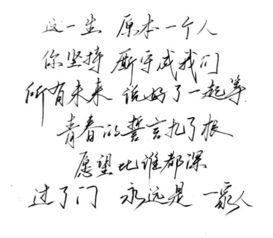 这一生 原本一个人
你坚持 厮守成我们
所有未来 说好了一起等
青春的誓言扎了根
愿望比谁都深
过了门 永远是 一家人